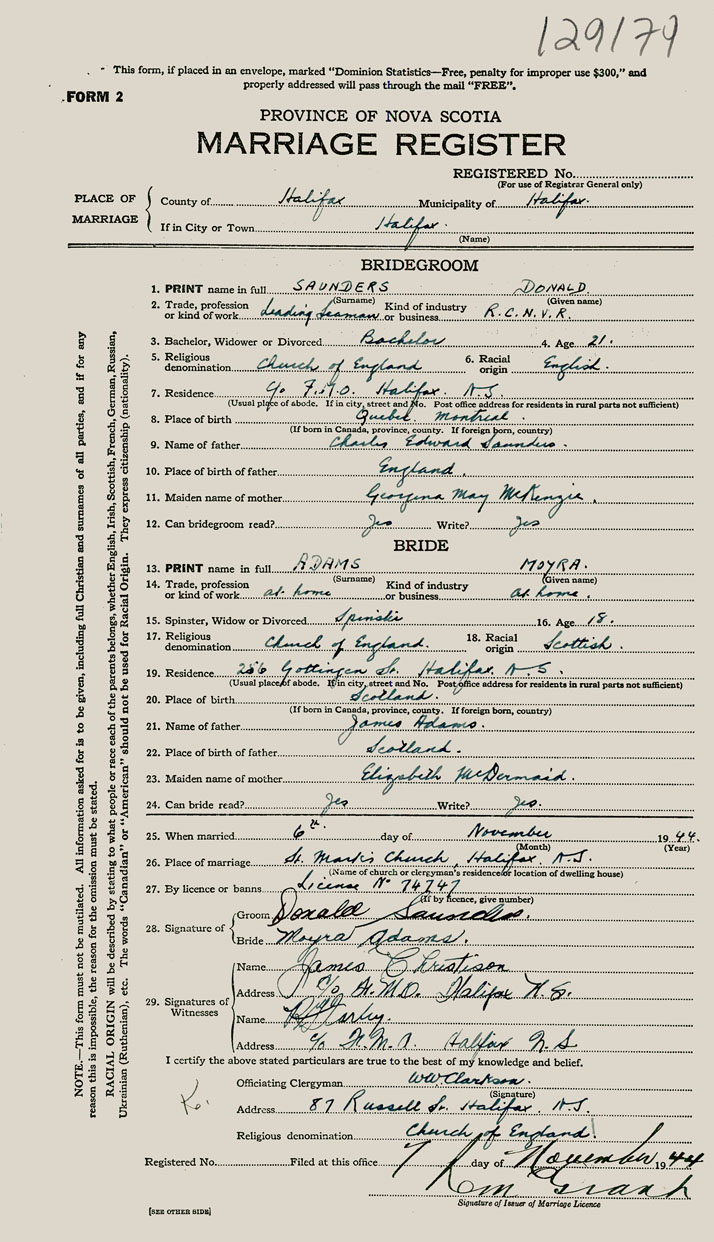 129179
This form, if placed in an envelope, marked "Dominion Statistics—Free, penalty for improper use $300," and
properly addressed will pass through the mail "FREE".
FORM 2
PROVINCE OF NOVA SCOTIA
MARRIAGE REGISTER
REGISTERED No.
(For use of Registrar General only)
PLACE OF MARRIAGE
County of Halifax Municipality of Halifax.
If in City or Town Halifax.
(Name)
BRIDEGROOM
1. PRINT name in full SAUNDERS DONALD.
(Surname) (Given name)
2. Trade, profession or kind of work Leading Seaman Kind of industry or business R.C.N.V.R.
3. Bachelor, Widower or Divorced Bachelor 4. Age 21.
5. Religious denomination Church of England 6. Racial origin English.
7. Residence C/o F.M.O. Halifax. N.S.
(Usual place of abode. If in city, street and No. Post office address for residents in rural parts not sufficient)
8. Place of birth Quebec Montreal.
(If born in Canada, province, county. If foreign born, country)
9. Name of father Charles Edward Saunders.
10. Place of birth of father England.
11. Maiden name of mother Georgina May McKenzie.
12. Can bridegroom read? Yes Write? Yes
BRIDE
13. PRINT name in full ADAMS MOYRA.
(Surname) (Given name)
14. Trade, profession or kind of work at home Kind of industry or business at home.
15. Spinster, Widow or Divorced Spinster 16. Age 18.
17. Religious denomination Church of England. 18. Racial origin Scottish.
19. Residence 256 Gottingen St. Halifax. N.S.
(Usual place of abode. If in city, street and No. Post office address for residents in rural parts not sufficient)
20. Place of birth Scotland.
(If born in Canada, province, county. If foreign born, country)
21. Name of father James Adams.
22. Place of birth of father Scotland.
23. Maiden name of mother Elizabeth McDermaid.
24. Can bride read? Yes Write? Yes.
25. When married 6th. day of November 1944.
(Month) (Year)
26. Place of marriage St. Mark's Church, Halifax. N.S.
(Name of church or clergyman's residence or location of dwelling house)
27. By licence or banns License No 74747
(If by licence, give number)
28. Signature of
Groom Donald Saunders.
Bride Moyra Adams.
29. Signatures of Witnesses
Name James Christison
Address C/o Halifax N.S.
Name
Address C/o Halifax N.S
I certify the above stated particulars are true to the best of my knowledge and belief.
Officiating Clergyman WW Clarkson.
(Signature)
Address 87 Russell St. Halifax. N.S.
Religious denomination Church of England.
Registered No. Filed at this office 7 day of November 1944
Grant
Signature of Issuer of Marriage Licence
[SEE OTHER SIDE]
NOTE.—This form must not be mutilated. All information asked for is to be given, including full Christian and surnames of all parties, and if for any
reason this is impossible, the reason for the omission must be stated.
RACIAL ORIGIN will be described by stating to what people or race each of the parents belongs, whether English, Irish, Scottish, French, German, Russian,
Ukrainian (Ruthenian), etc. The words "Canadian" or "American" should not be used for Racial Origin. They express citizenship (nationality).